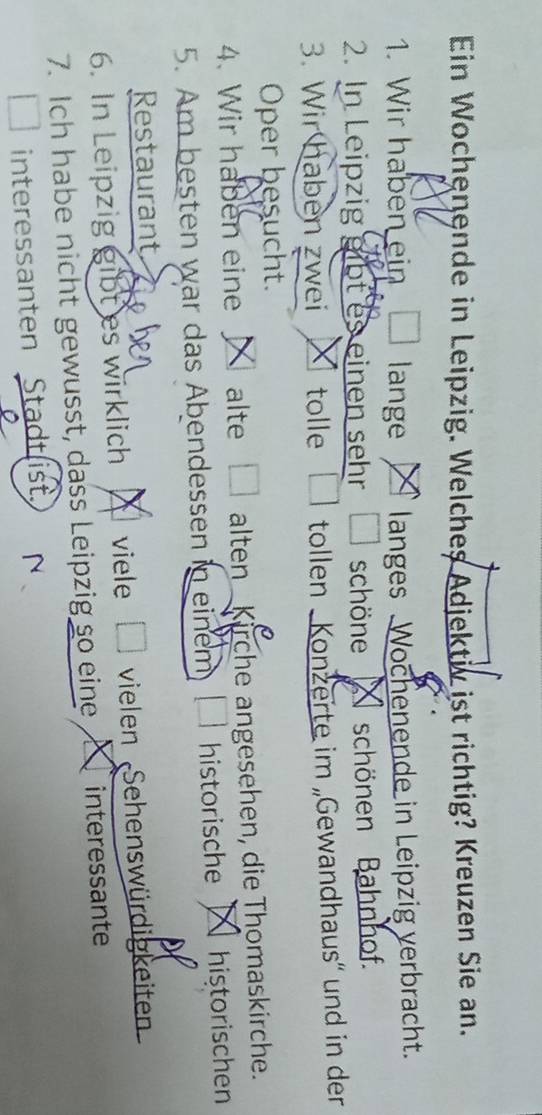 Ein Wochenende in Leipzig. Welches Adjektiv ist richtig? Kreuzen Sie an.
1. Wir haben ein ☐ lange ☒ langes Wochenende in Leipzig verbracht.
2. In Leipzig gibt es einen sehr ☐ schöne ☒ schönen Bahnhof.
3. Wir haben zwei ☒ tolle ☐ tollen Konzerte im „Gewandhaus“ und in der
Oper besucht.
4. Wir haben eine ☒ alte ☐ alten Kirche angesehen, die Thomaskirche.
5. Am besten war das Abendessen in einem ☐ historische ☒ historischen
Restaurant.
6. In Leipzig gibt es wirklich ☒ viele ☐ vielen Sehenswürdigkeiten
pl
7. Ich habe nicht gewusst, dass Leipzig so eine ☒ interessante
☐ interessanten Stadt ist.